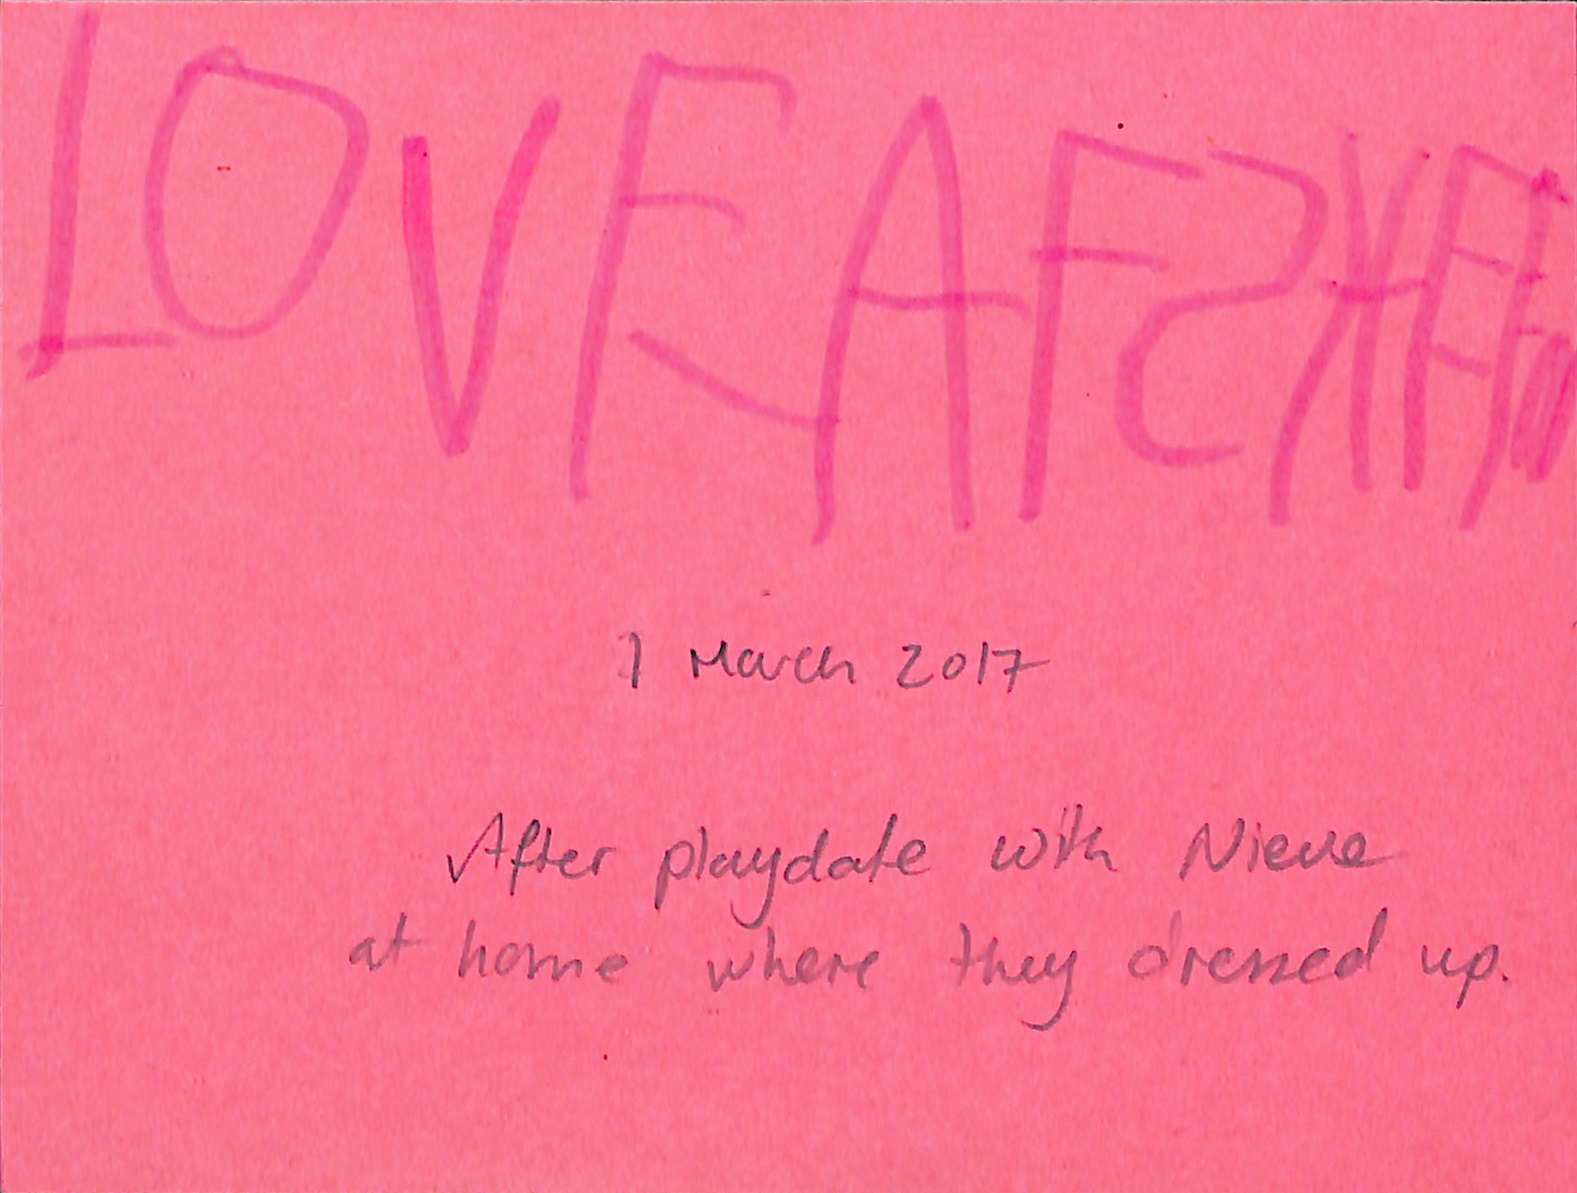 LOVE
1 March 2017
After playdate with Nieve
at home where they dressed up.